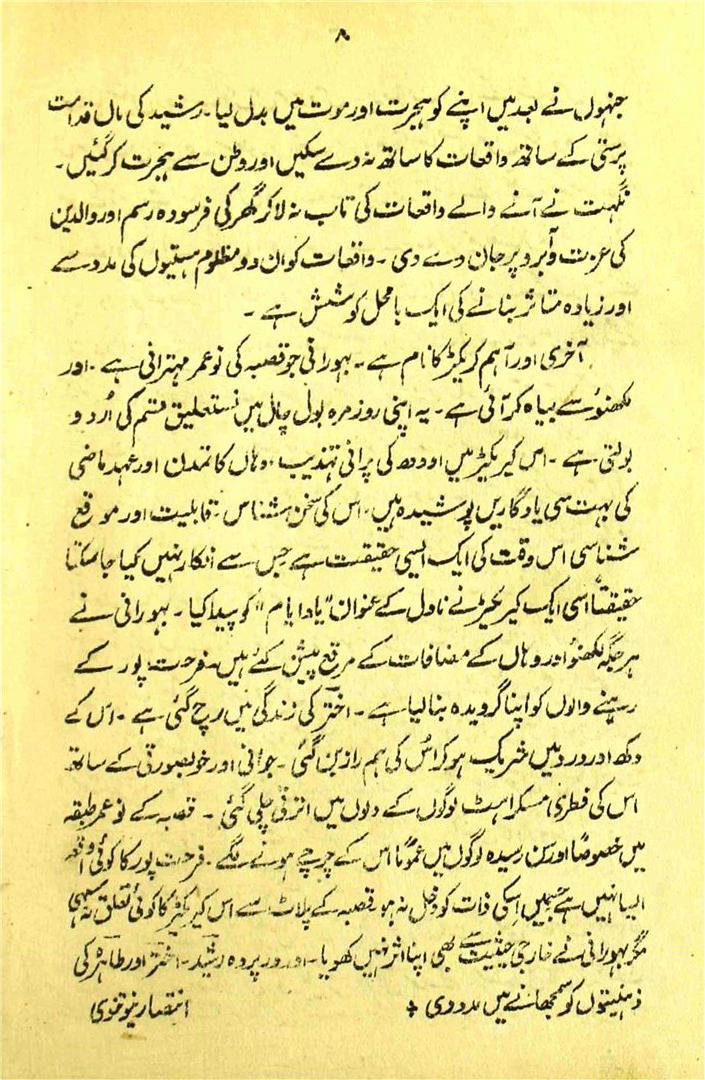 ۸
جنہوں نے بعد میں اپنے کو ہجرت اور موت میں بدل لیا۔ رشید کی ماں قدامت
پرستی کے ساتھ واقعات کا ساتھ نہ دے سکیں اور وطن سے ہجرت کر گئیں۔
نگہت نے آنے والے واقعات کی تاب نہ لا کر گھر کی فرسودہ رسم اور والدین
کی عزت و آبرو پر جان دے دی۔ واقعات کو ان دو مظلوم ہستیوں کی مدد سے
اور زیادہ متاثر بنانے کی ایک بامحل کوشش ہے۔
آخری اور اہم کریکٹر کا نام ہے۔ بہورانی جو قصبہ کی نو عمر مہترانی ہے۔ اور
لکھنؤ سے بیاہ کر آئی ہے۔ یہ اپنی روز مرہ بول چال میں نستعلیق قسم کی اُردو
بولتی ہے۔ اس کیریکٹر میں اودھ کی پرانی تہذیب، وہاں کا تمدن اور عہد ماضی
کی بہت سی یادگاریں پوشیدہ ہیں۔ اس کی سخن شناس، قابلیت اور موقع
شناسی اس وقت کی ایک ایسی حقیقت ہے جس سے انکار نہیں کیا جا سکتا
حقیقتاً اسی ایک کیریکٹر نے ناول کے عنوان "یاد ایام" کو پیدا کیا۔ بہورانی نے
ہر جگہ لکھنؤ اور وہاں کے مضافات کے مرقع پیش کئے ہیں۔ فرحت پور کے
رہنے والوں کو اپنا گرویدہ بنا لیا ہے۔ اختر کی زندگی میں رچ گئی ہے۔ اس کے
دکھ اور درد میں شریک ہو کر اُس کی ہم راز بن گئی۔ جوانی اور خوبصورتی کے ساتھ
اس کی فطری مسکراہٹ لوگوں کے دلوں میں اترتی چلی گئی۔ قصبہ کے نو عمر طبقہ
میں خصوصاً اور سن رسیدہ لوگوں میں عموماً اس کے چرچے ہونے لگے۔ فرحت پور کا کوئی واقعہ
ایسا نہیں ہے جسمیں اِسکی ذات کو دخل نہ ہو قصبہ کے پلاٹ سے اس کیریکٹر کا کوئی تعلق نہ سہی
مگر بہورانی نے خارجی حیثیت سے بھی اپنا اثر نہیں کھویا۔ اور در پردہ رشید۔ اختر اور طاہرہ کی
ذہنیتوں کو سمجھانے میں مدد دی + انتصار نیوتنوی